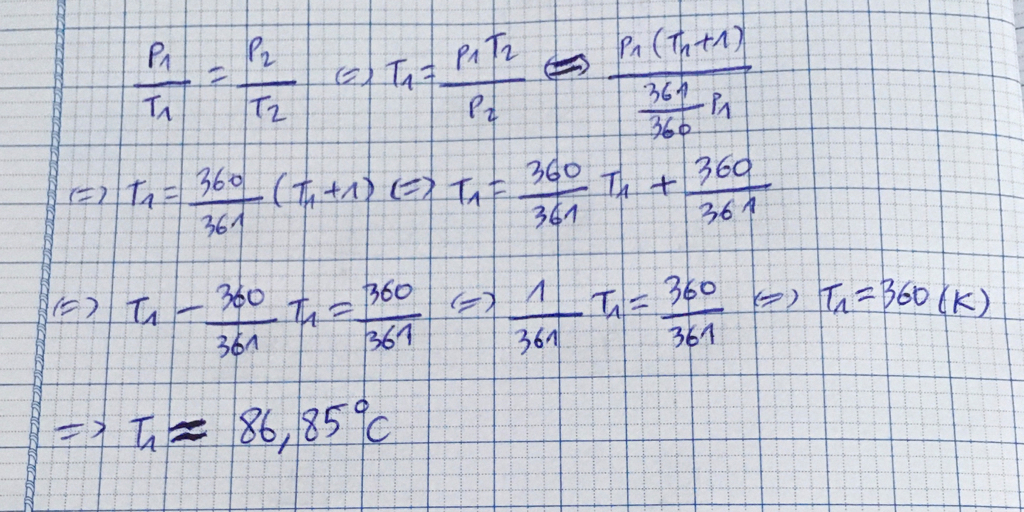 P1/T1 = P2/T2 <=> T1 = P1T2/P2 <=> P1(T1+1)/(361/360 P1)
<=> T1 = 360/361 (T1+1) <=> T1 = 360/361 T1 + 360/361
<=> T1 - 360/361 T1 = 360/361 <=> 1/361 T1 = 360/361 <=> T1 = 360 (K)
=> T1 ≈ 86,85°C